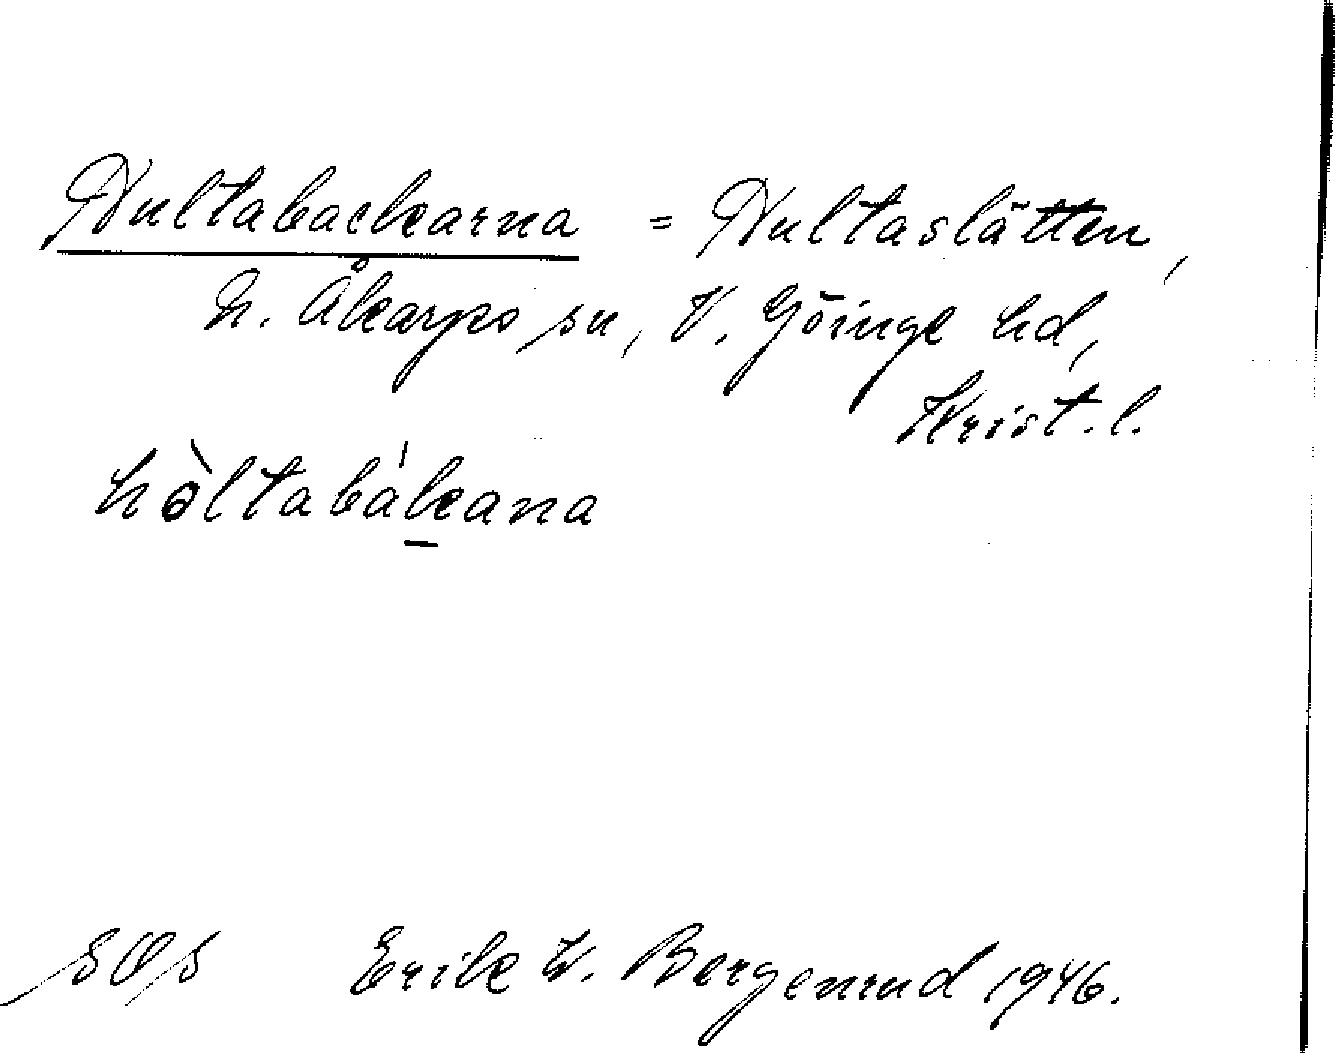 Hultabackarna = Hultaslätten,
N. Åkarps sn, V. Göinge hd,
Krist. l.
hòltabákana
SOS Erik W. Bergenrud 1946.